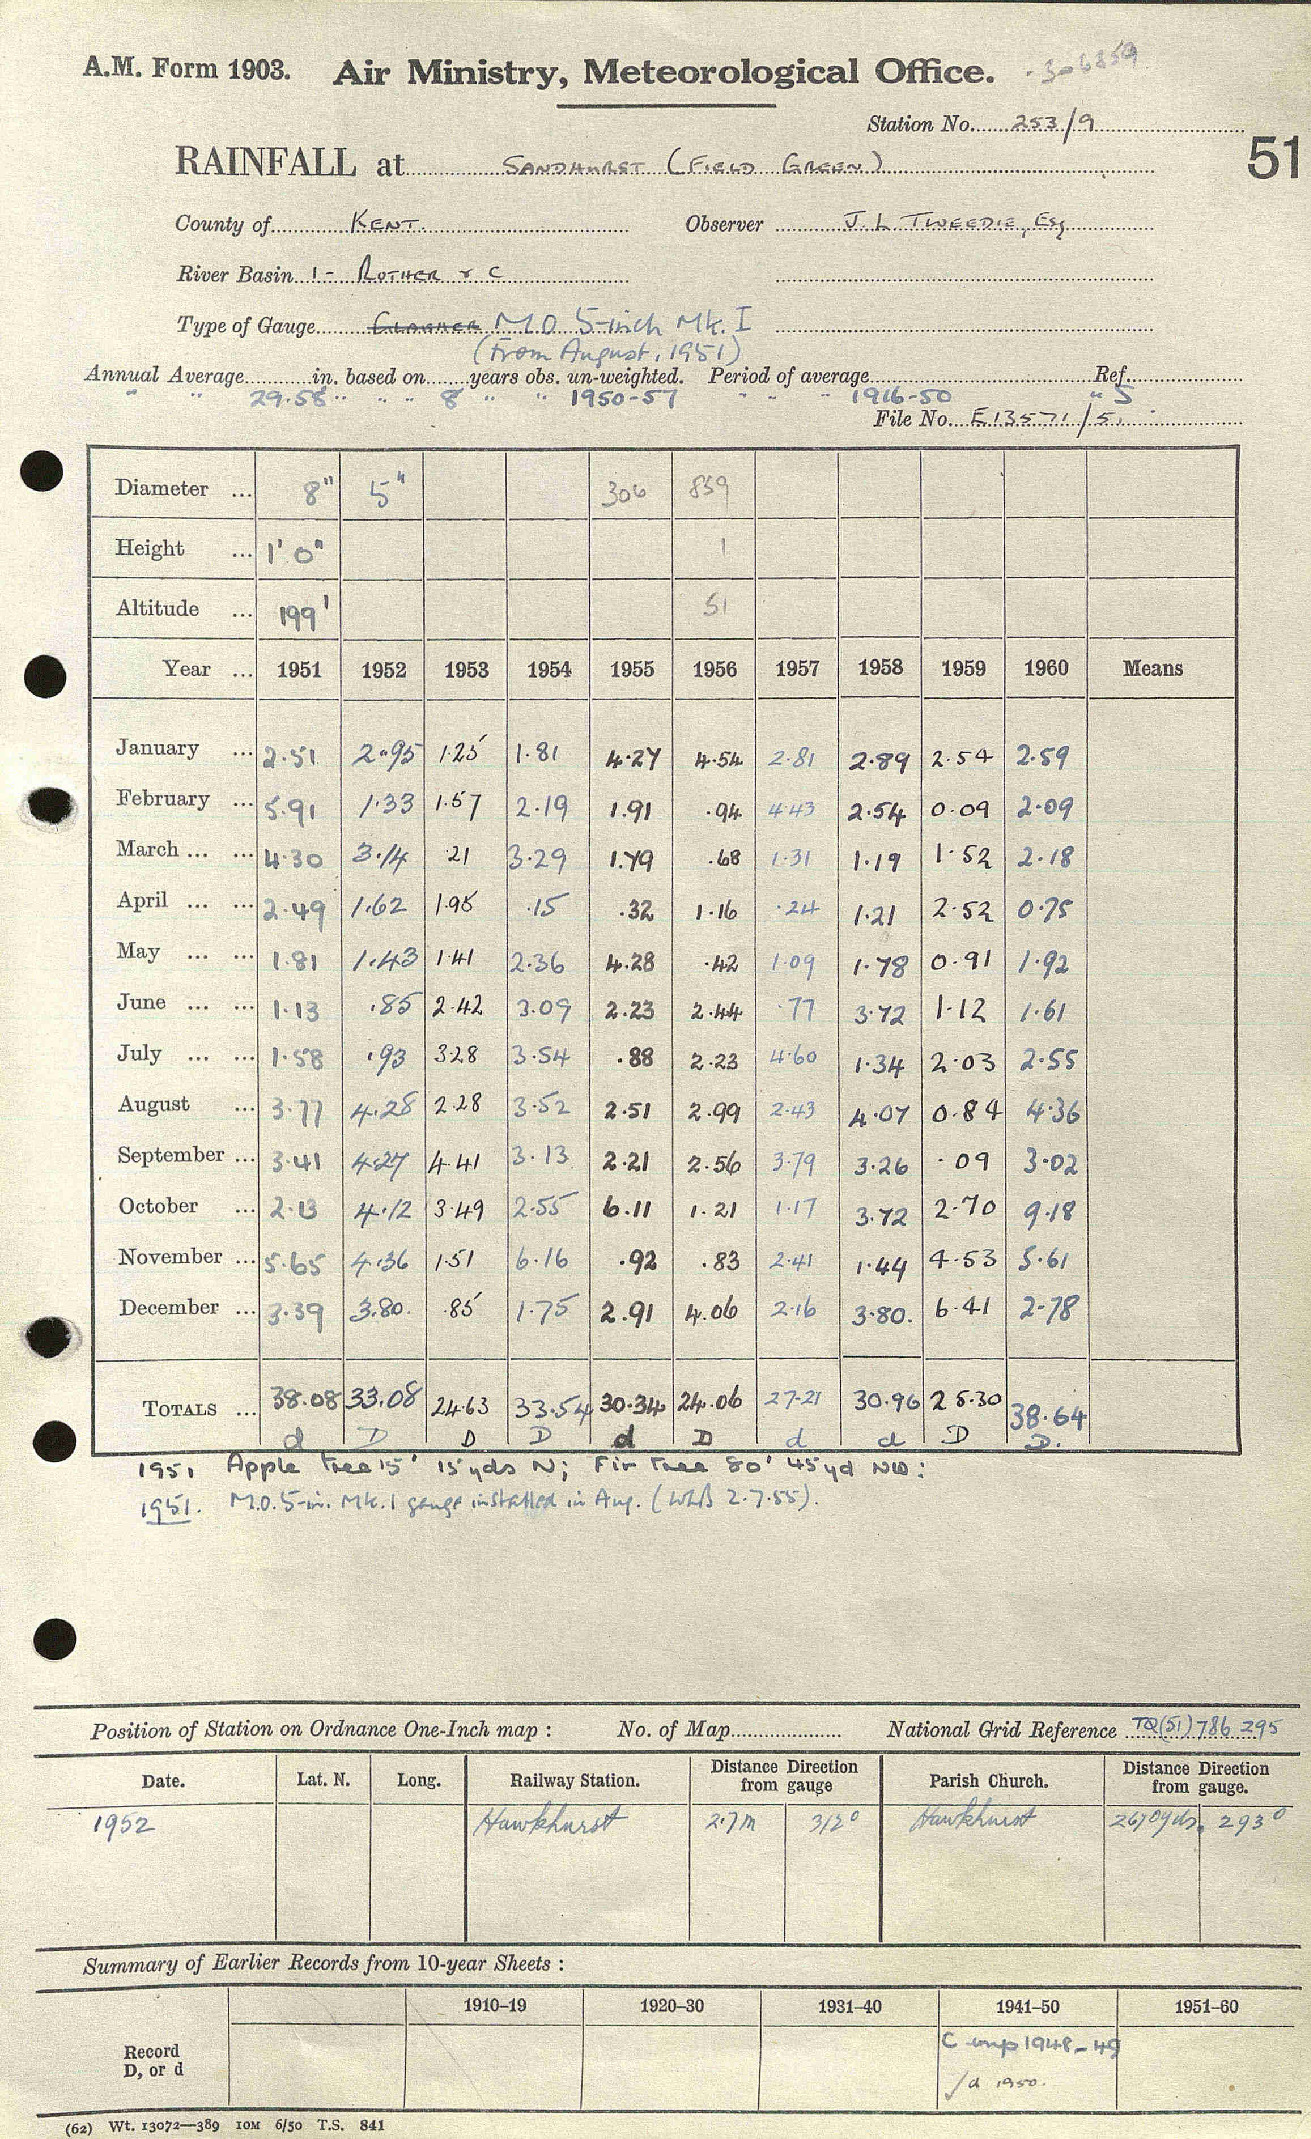 A.M. Form 1903. Air Ministry, Meteorological Office. 306859
Station No. 253/9
RAINFALL at SANDHURST (FIELD GREEN) 51
County of KENT. Observer J. L. TWEEDIE, Esq
River Basin 1- ROTHER & C
Type of Gauge M.O 5-inch Mk. I
(From August, 1951)
Annual Average in. based on years obs. un-weighted. Period of average Ref.
" " 29.58 " " " 8 " " 1950-57 " " " 1916-50 " 5
File No. E13571/51
Diameter ... 8" 5" 306 859
Height ... 1' 0" 1
Altitude ... 199' 51
Year ... 1951 1952 1953 1954 1955 1956 1957 1958 1959 1960 Means
January ... 2.51 2.95 1.25 1.81 4.27 4.54 2.81 2.89 2.54 2.59
February ... 5.91 1.33 1.57 2.19 1.91 .94 4.43 2.54 0.09 2.09
March ... ... 4.30 3.14 .21 3.29 1.79 .68 1.31 1.19 1.52 2.18
April ... ... 2.49 1.62 1.95 .15 .32 1.16 .24 1.21 2.52 0.75
May ... ... 1.81 1.43 1.41 2.36 4.28 .42 1.09 1.78 0.91 1.92
June ... ... 1.13 .85 2.42 3.09 2.23 2.44 .77 3.72 1.12 1.61
July ... ... 1.58 .93 3.28 3.54 .88 2.23 4.60 1.34 2.03 2.55
August ... 3.77 4.28 2.28 3.52 2.51 2.99 2.43 4.07 0.84 4.36
September ... 3.41 4.27 4.41 3.13 2.21 2.56 3.79 3.26 .09 3.02
October ... 2.13 4.12 3.49 2.55 6.11 1.21 1.17 3.72 2.70 9.18
November ... 5.65 4.36 1.51 6.16 .92 .83 2.41 1.44 4.53 5.61
December ... 3.39 3.80. .85 1.75 2.91 4.06 2.16 3.80. 6.41 2.78
TOTALS ... 38.08 33.08 24.63 33.54 30.34 24.06 27.21 30.96 25.30 38.64
d D D D d D d d D D.
1951 Apple tree 15' 15yds N; Fir tree 80' 45yd NW:
1951. M.O. 5-in. Mk. I gauge installed in Aug. (WLB 2.7.55).
Position of Station on Ordnance One-Inch map : No. of Map National Grid Reference TQ(51)786 295
Date. Lat. N. Long. Railway Station. Distance Direction from gauge Parish Church. Distance Direction from gauge.
1952 Hawkhurst 2.7m 312° Hawkhurst 2670yds. 293°
Summary of Earlier Records from 10-year Sheets :
1910–19 1920–30 1931–40 1941–50 1951–60
Record C 1948-49
D, or d /d 1950.
(62) Wt. 13072—389 10M 6/50 T.S. 841